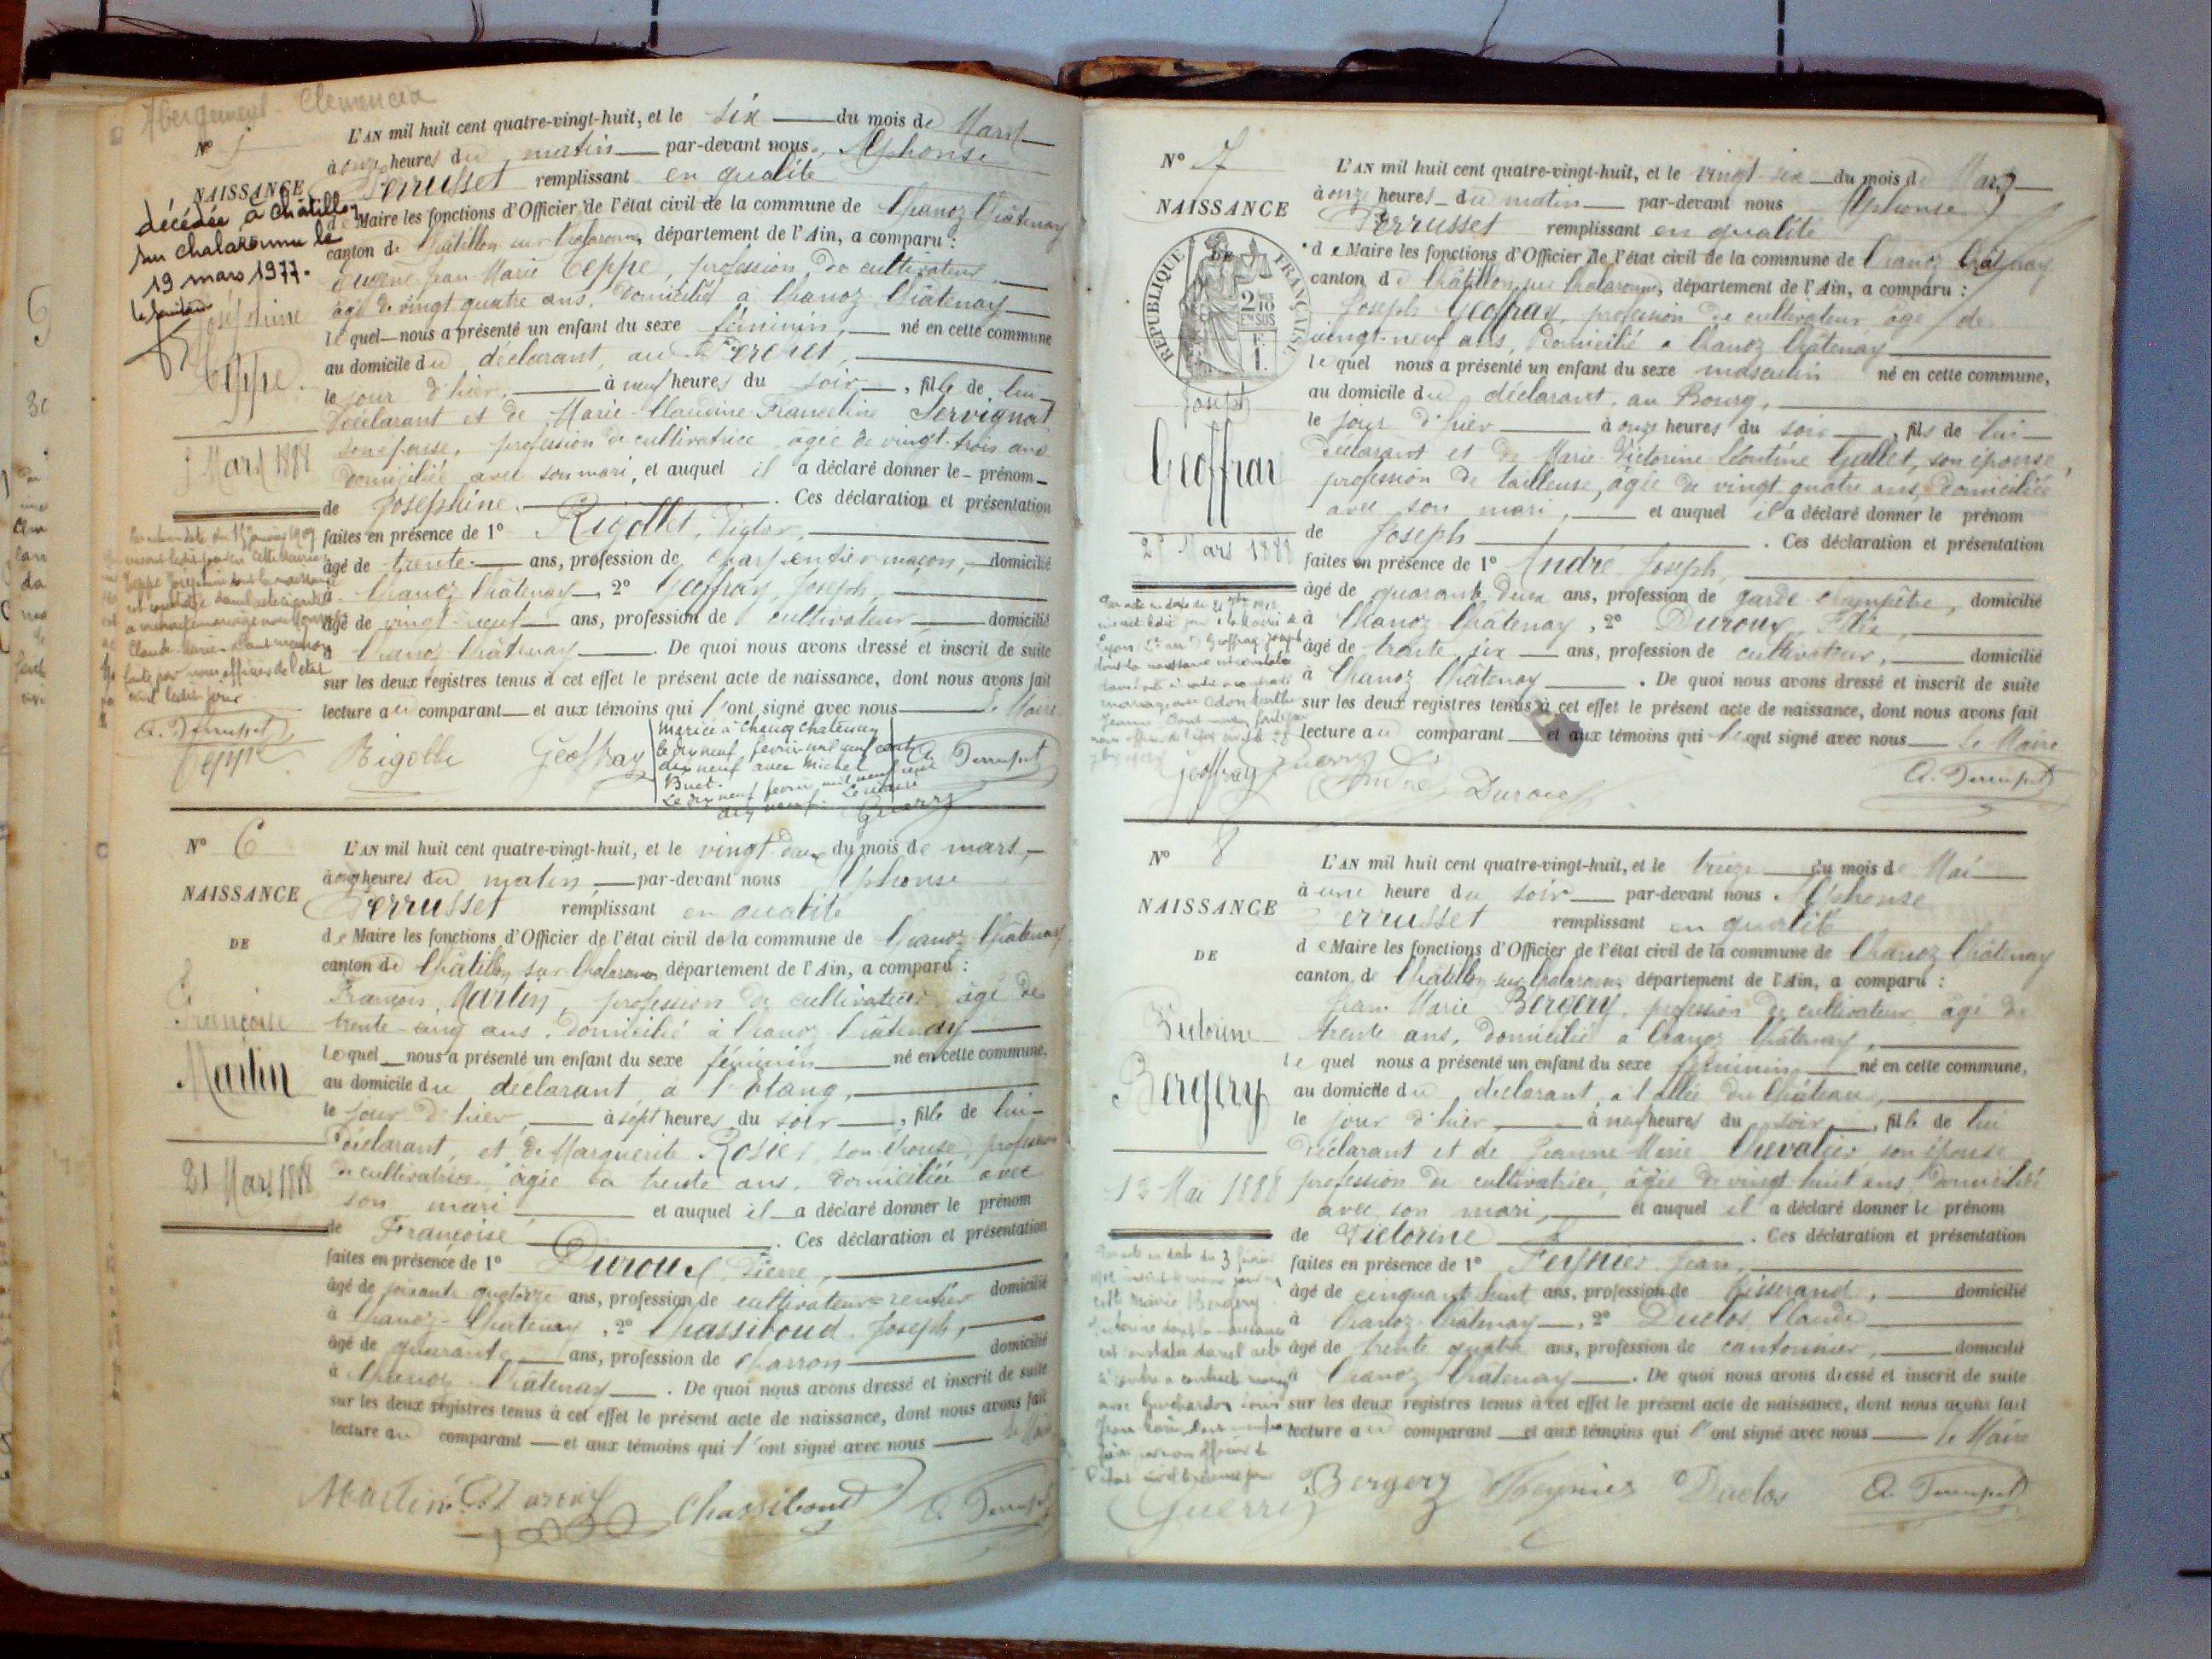 Abergement Clemencia
N° 5
NAISSANCE
décédée à Châtillon
sur chalaronne le
19 mars 1977.
Joséphine
Teppe.
5 Mars 1888
L'AN mil huit cent quatre-vingt-huit, et le six du mois de Mars
à onze heures du matin par-devant nous Alphonse
Perrusset remplissant en qualité
de Maire les fonctions d'Officier de l'état civil de la commune de Chanoz Châtenay
canton de Châtillon sur Chalaronne, département de l'Ain, a comparu :
Eugène Jean Marie Teppe, profession de cultivateur
âgé de vingt quatre ans, domicilié à Chanoz Châtenay
lequel nous a présenté un enfant du sexe féminin, né en cette commune
au domicile du déclarant, au
le jour d'hier, à neuf heures du soir, fille de lui
déclarant et de Marie Claudine Franceline Servignat
son épouse, profession de cultivatrice âgée de vingt trois ans
domiciliée avec son mari, et auquel il a déclaré donner le prénom
de Joséphine. Ces déclaration et présentation
faites en présence de 1° Rigollet, Victor,
âgé de trente ans, profession de charpentier maçon, domicilié
à Chanoz Châtenay, 2° Geoffray, Joseph,
âgé de vingt neuf ans, profession de cultivateur domicilié
à Chanoz Châtenay. De quoi nous avons dressé et inscrit de suite
sur les deux registres tenus à cet effet le présent acte de naissance, dont nous avons fait
lecture au comparant et aux témoins qui l'ont signé avec nous le Maire
Mariée à Chanoz Chatenay
le dix neuf février mil neuf cent
dix neuf avec Michel
Buet.
Le dix neuf février mil neuf cent
dix neuf. Le maire
Guerry
Teppe Rigollet Geoffray A. Perrusset
N° 6
NAISSANCE
DE
Françoise
Martin
21 Mars 1888
L'AN mil huit cent quatre-vingt-huit, et le vingt deux du mois de mars,
à onze heures du matin par-devant nous Alphonse
Perrusset remplissant en qualité
de Maire les fonctions d'Officier de l'état civil de la commune de Chanoz Châtenay
canton de Châtillon sur Chalaronne département de l'Ain, a comparu :
François Martin, profession de cultivateur âgé de
trente cinq ans, domicilié à Chanoz Châtenay
lequel nous a présenté un enfant du sexe féminin né en cette commune,
au domicile du déclarant, à l'étang,
le jour d'hier, à sept heures du soir, fille de lui
déclarant, et de Marguerite Rosier, son épouse, profession
de cultivatrice, âgée de trente ans, domiciliée avec
son mari et auquel il a déclaré donner le prénom
de Françoise. Ces déclaration et présentation
faites en présence de 1° Duroux, Pierre,
âgé de soixante quatorze ans, profession de cultivateur rentier domicilié
à Chanoz-Châtenay, 2° Chassiboud Joseph,
âgé de quarante ans, profession de charron domicilié
à Chanoz Châtenay. De quoi nous avons dressé et inscrit de suite
sur les deux registres tenus à cet effet le présent acte de naissance, dont nous avons fait
lecture au comparant et aux témoins qui l'ont signé avec nous le Maire
Martin Duroux Chassiboud A. Perrusset
N° 7
NAISSANCE
DE
RÉPUBLIQUE FRANÇAISE
Joseph
Geoffray
25 Mars 1888
L'AN mil huit cent quatre-vingt-huit, et le vingt six du mois de Mars
à onze heures du matin par-devant nous Alphonse
Perrusset remplissant en qualité
de Maire les fonctions d'Officier de l'état civil de la commune de Chanoz Châtenay
canton de Châtillon sur Chalaronne, département de l'Ain, a comparu :
Joseph Geoffray, profession de cultivateur âgé de
vingt-neuf ans, domicilié à Chanoz Châtenay
lequel nous a présenté un enfant du sexe masculin né en cette commune,
au domicile du déclarant, au Bourg,
le jour d'hier à onze heures du soir, fils de lui
déclarant et de Marie Victorine Léontine Gallet, son épouse,
profession de tailleuse, âgée de vingt quatre ans, domiciliée
avec son mari, et auquel il a déclaré donner le prénom
de Joseph. Ces déclaration et présentation
faites en présence de 1° André Joseph,
âgé de quarante deux ans, profession de garde champêtre, domicilié
à Chanoz Châtenay, 2° Duroux, Félix,
âgé de trente six ans, profession de cultivateur, domicilié
à Chanoz Châtenay. De quoi nous avons dressé et inscrit de suite
sur les deux registres tenus à cet effet le présent acte de naissance, dont nous avons fait
lecture au comparant et aux témoins qui l'ont signé avec nous le Maire
Geoffray André Duroux A. Perrusset
N° 8
NAISSANCE
DE
Victorine
Bergery
12 Mai 1888
L'AN mil huit cent quatre-vingt-huit, et le treize du mois de Mai
à une heure du soir par-devant nous Alphonse
Perrusset remplissant en qualité
de Maire les fonctions d'Officier de l'état civil de la commune de Chanoz Châtenay
canton de Châtillon sur Chalaronne, département de l'Ain, a comparu :
Jean Marie Bergery, profession de cultivateur âgé de
trente ans, domicilié à Chanoz Châtenay,
lequel nous a présenté un enfant du sexe féminin né en cette commune,
au domicile du déclarant, à l'allée du Château,
le jour d'hier à neuf heures du soir, fille de lui
déclarant et de Jeanne Marie Chevalier son épouse
profession de cultivatrice, âgée de vingt huit ans, domiciliée
avec son mari, et auquel il a déclaré donner le prénom
de Victorine. Ces déclaration et présentation
faites en présence de 1° Feynier Jean,
âgé de cinquante huit ans, profession de tisserand, domicilié
à Chanoz Châtenay, 2° Duclos, Claude
âgé de trente quatre ans, profession de cantonnier, domicilié
à Chanoz Châtenay. De quoi nous avons dressé et inscrit de suite
sur les deux registres tenus à cet effet le présent acte de naissance, dont nous avons fait
lecture au comparant et aux témoins qui l'ont signé avec nous le Maire
Guerry Bergery Feynier Duclos A. Perrusset